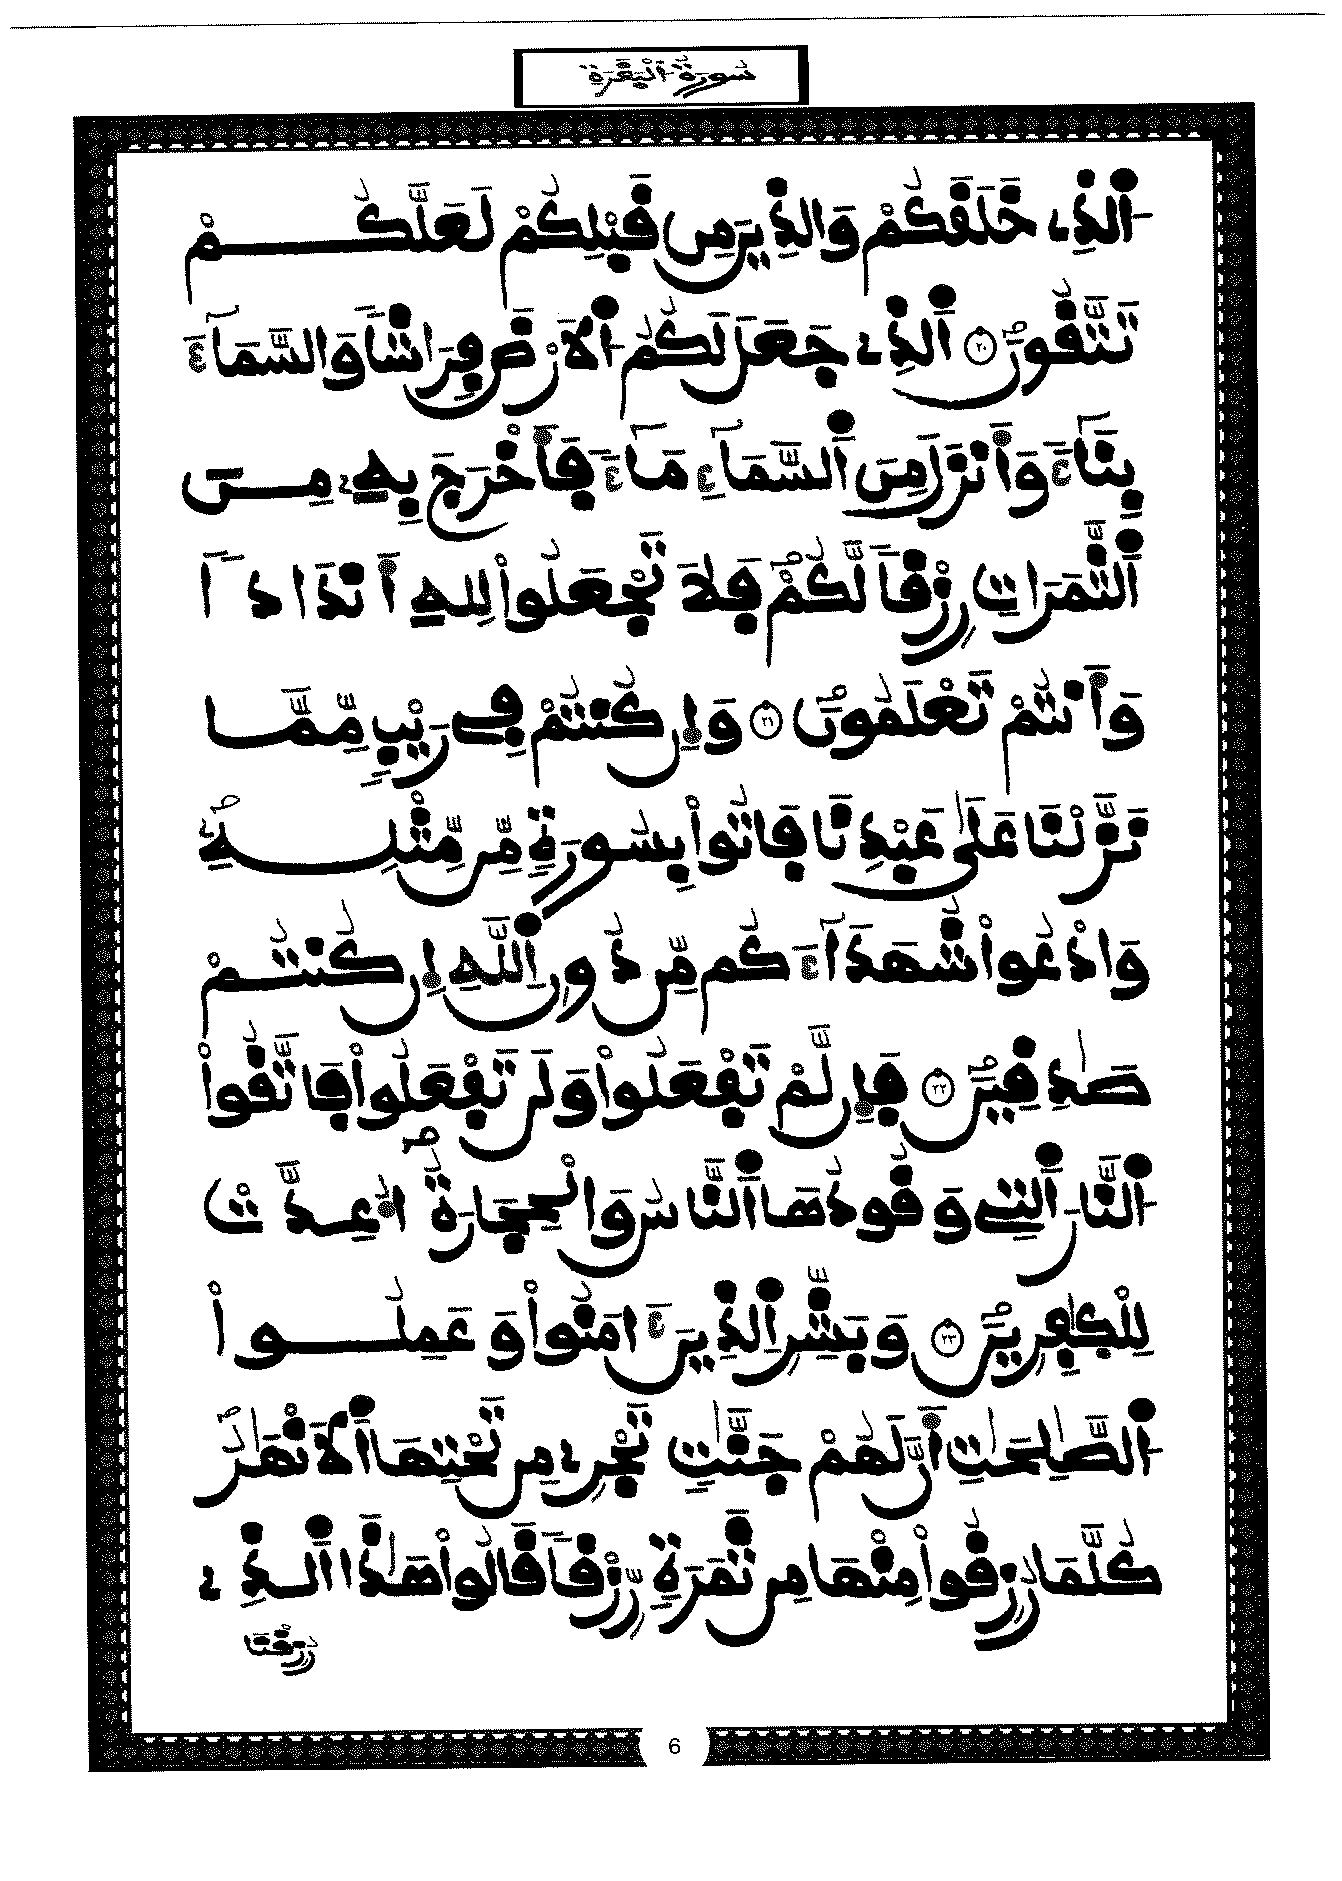 سُورَةُ اَ۬لْبَقَرَةِ
اَ۬لذِے خَلَقَكُمْ وَالذِينَ مِن قَبْلِكُمْ لَعَلَّكُمْ
تَتَّقُونَۖ ٢٠ اَ۬لذِے جَعَلَ لَكُمُ اُ۬لَارْضَ فِرَاشاٗ وَالسَّمَآءَ
بِنَآءٗ وَأَنزَلَ مِنَ اَ۬لسَّمَآءِ مَآءٗ فَأَخْرَجَ بِهِۦ مِنَ
اَ۬لثَّمَرَاتِ رِزْقاٗ لَّكُمْۖ فَلَا تَجْعَلُواْ لِلهِ أَندَاداٗ
وَأَنتُمْ تَعْلَمُونَۖ ٢١ وَإِن كُنتُمْ فِے رَيْبٖ مِّمَّا
نَزَّلْنَا عَلَىٰ عَبْدِنَا فَاتُواْ بِسُورَةٖ مِّن مِّثْلِهِۦۖ
وَادْعُواْ شُهَدَآءَكُم مِّن دُونِ اِ۬للَّهِ إِن كُنتُمْ
صَٰدِقِينَۖ ٢٢ فَإِن لَّمْ تَفْعَلُواْ وَلَن تَفْعَلُواْ فَاتَّقُواْ
اُ۬لنَّارَ اَ۬لتِے وَقُودُهَا اَ۬لنَّاسُ وَالْحِجَارَةُۖ أُعِدَّتْ
لِلْكٰ۪فِرِينَۖ ٢٣ وَبَشِّرِ اِ۬لذِينَ ءَامَنُواْ وَعَمِلُواْ
اُ۬لصَّٰلِحَٰتِ أَنَّ لَهُمْ جَنَّٰتٖ تَجْرِے مِن تَحْتِهَا اَ۬لَانْهَٰرُۖ
كُلَّمَا رُزِقُواْ مِنْهَا مِن ثَمَرَةٖ رِّزْقاٗ قَالُواْ هَٰذَا اَ۬لذِے
رُزِقْنَا
6